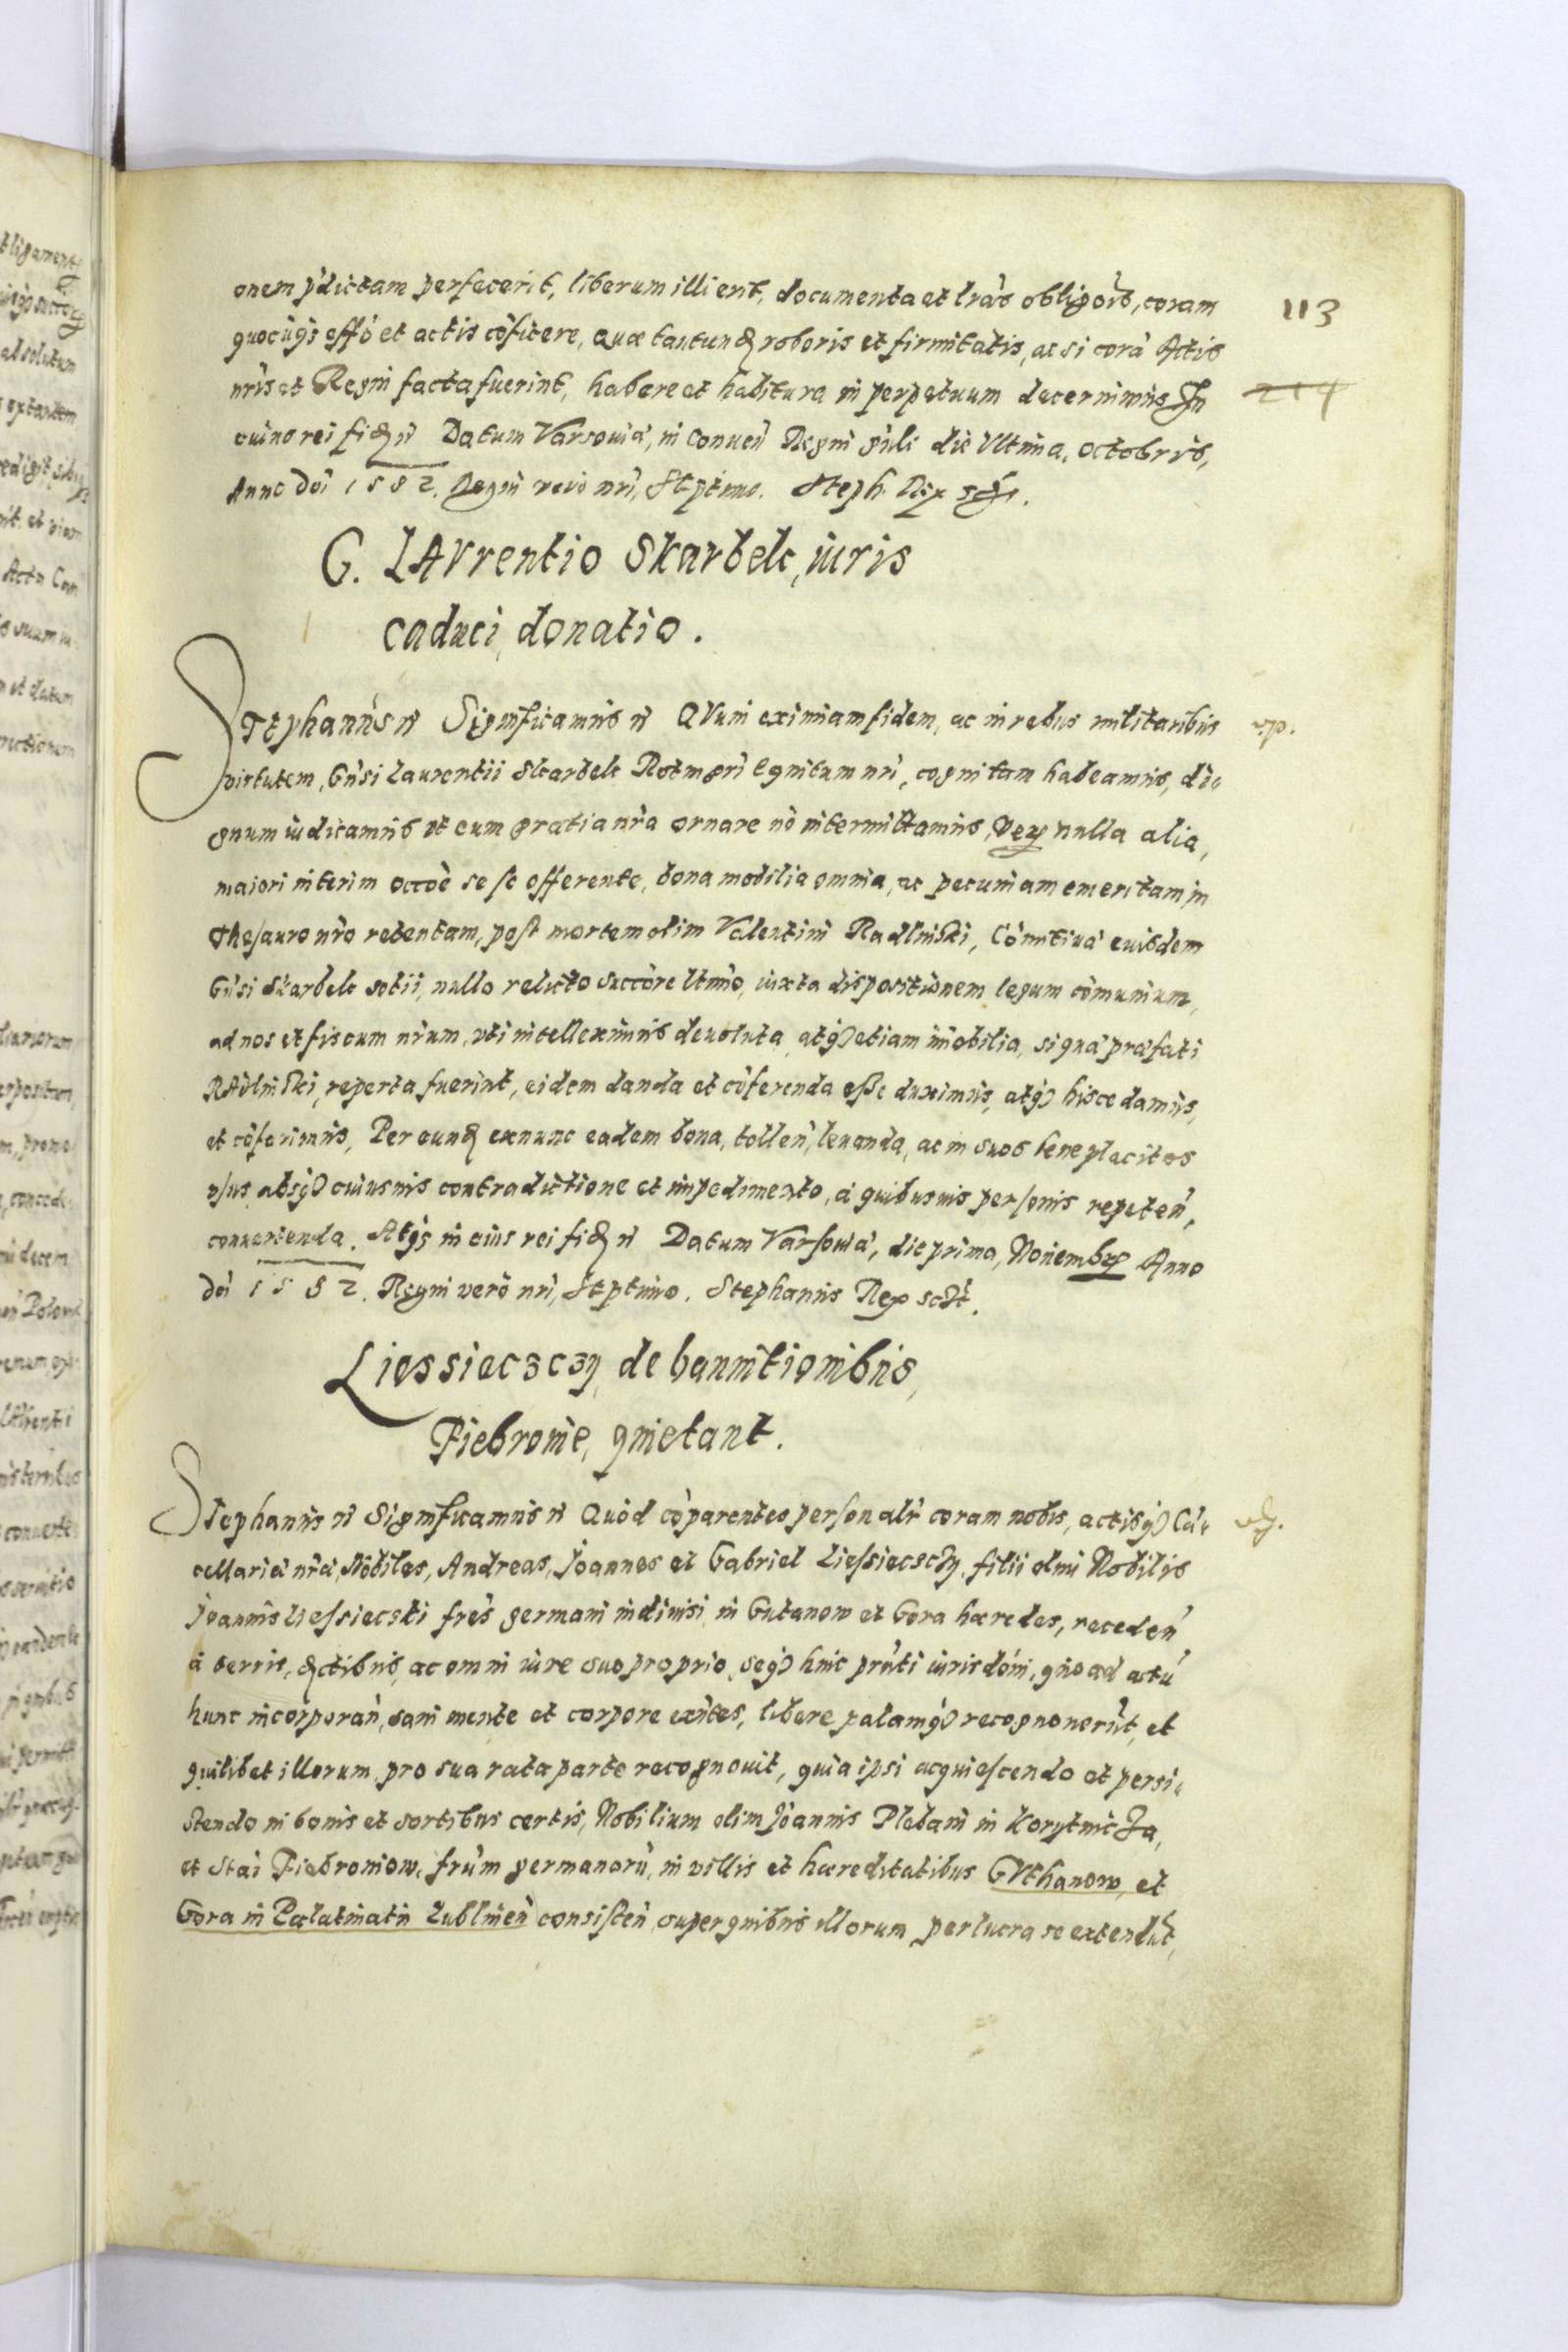 onem p'dictam perfecerit, liberum illi erit, documenta et lrãs obligors, coram
113
quocũqȝ offo et actis cõficere, Quæ tantunđ roboris et firmitatis, ac si corã Actis
nris et Regni facta fuerint, habere et habitura in perpetuum decernimus In
cuius rei fidem Datum Varsouiæ, in Conuen Regni gnli die Vltima, Octobris,
Anno Dni 1582. Regni vero nri, Septimo. Steph. Rex sst.
G. LAVrentio Skarbek, iuris
caduci donatio.
STephanus Significamus QVum eximiam fidem, ac in rebus militaribus
virtutem, Gnsi Laurentii Skarbek Rotmgri Equitum nri, cognitam habeamus, di
gnum iudicamus vt eum gratia nra ornare nõ intermittamus, Veru nulla alia,
maiori interim occõe se se offerente, bona mobilia omnia, ac pecuniam emeritam in
Thesauro nro retentam, post mortem olim Valentini Radlinski, Cõmitiuæ euisdem
Gnsi Skarbek sotii, nullo relicto succõre ltimo, iuxta dispositionem legum cõmunium,
ad nos et fiscum nrum, vti intelleximus deuoluta, atqȝ etiam imobilia, si qua præfati
RAdlinski, reperta fuerint, eidem danda et cõferenda esse duximus, atqȝ hisce damus,
et cõferimus, Per eunđ exnunc eadem bona, tollen, leuanda, ac in suos beneplacitos
vsus absqȝ cuiusuis contradictione et impedimento, à quibusuis personis repeten,
conuertenda. Atqȝ in eius rei fidem Datum Varsouiæ, die prima, Nouembr Anno
Dni 1582. Regni vero nri, Septimo. Stephanus Rex sst.
Liessieczczy, de bannitionibus,
Fiebronie, quietant.
STephanus Significamus Quod cõparentes personalr coram nobis, actisqȝ Cã
cellariæ nræ, Nobiles, Andreas, Joannes et Gabriel Liessieczczy, filii olim Nobilis
Joannis Liessiecski frẽs germani indiuisi in Gutanow et Gora hæredes, receden
à terris, đctibus, ac omni iure suo proprio, seqȝ huic prñti iurisdõni, quo ad actũ
hunc incorporañ, sani mente et corpore exñtes, libere palamqȝ recognouerũt, et
quilibet illorum pro sua rata parte recognouit, quia ipsi acquiescendo et persi
stendo in bonis et sortibus certis, Nobilium olim Joannis Plebani in Korytnicza,
et Stai Fiebroniow, frũm germanorũ, in villis et hæreditatibus GVthanow, et
Gora in Palatinatu Lublineñ consisteñ super quibus illorum per lucra se extendũt,